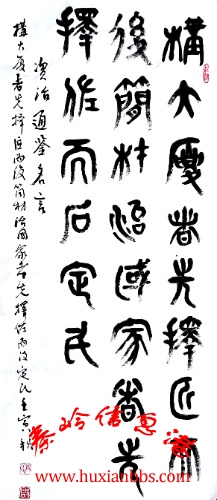 構大厦者先擇匠而
後簡材治國家者先
擇佐而后定民
资治通鉴名言
構大厦者先擇匠而後简材治國家者先擇佐而後定民壬寅
秦岭信息
www.huxianbbs.com